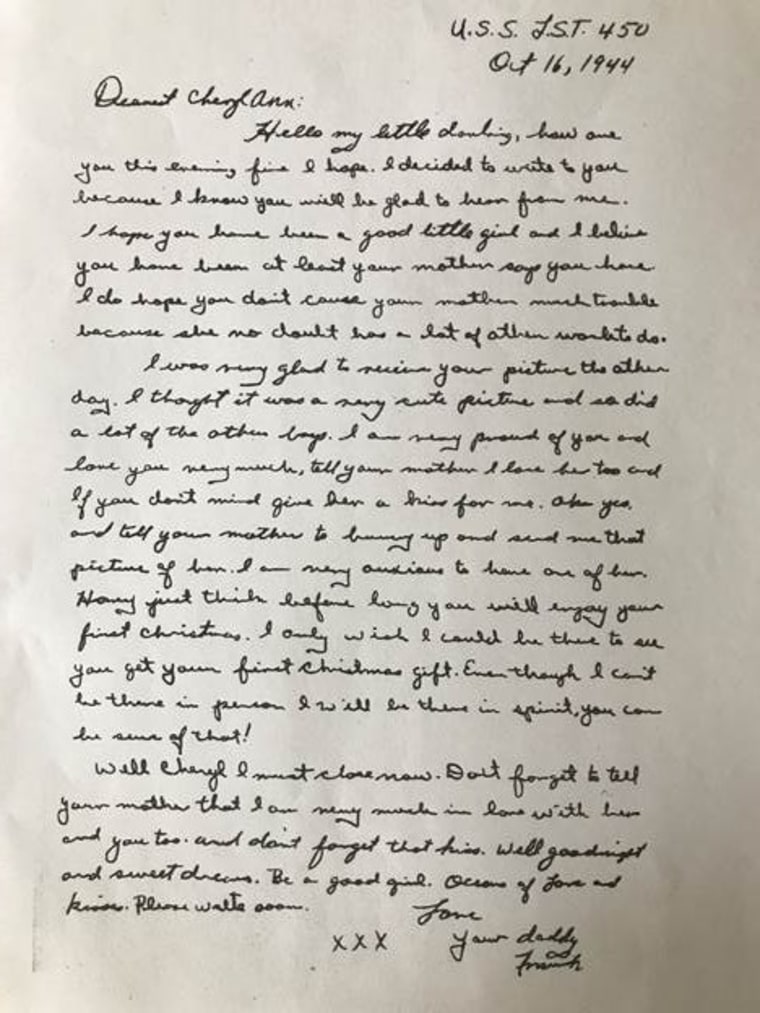 U.S.S. L.S.T. 450
Oct 16, 1944
Dearest Cheryl Ann:
Hello my little darling, how are
you this evening fine I hope. I decided to write to you
because I know you will be glad to hear from me.
I hope you have been a good little girl and I believe
you have been at least your mother says you have.
I do hope you don't cause your mother much trouble
because she no doubt has a lot of other work to do.
I was very glad to receive your picture the other
day. I thought it was a very cute picture and so did
a lot of the other boys. I am very proud of you and
love you very much, tell your mother I love her too and
If you don't mind give her a kiss for me. Oh yes,
and tell your mother to hurry up and send me that
picture of her. I am very anxious to have one of her.
Honey just think before long you will enjoy your
first Christmas. I only wish I could be there to see
you get your first Christmas gift. Even though I can't
be there in person I will be there in spirit, you can
be sure of that!
Well Cheryl I must close now. Don't forget to tell
your mother that I am very much in love with her
and you too. and don't forget that kiss. Well goodnight
and sweet dreams. Be a good girl. Oceans of Love and
kisses. Please write soon.
Love
XXX Your daddy
Frank